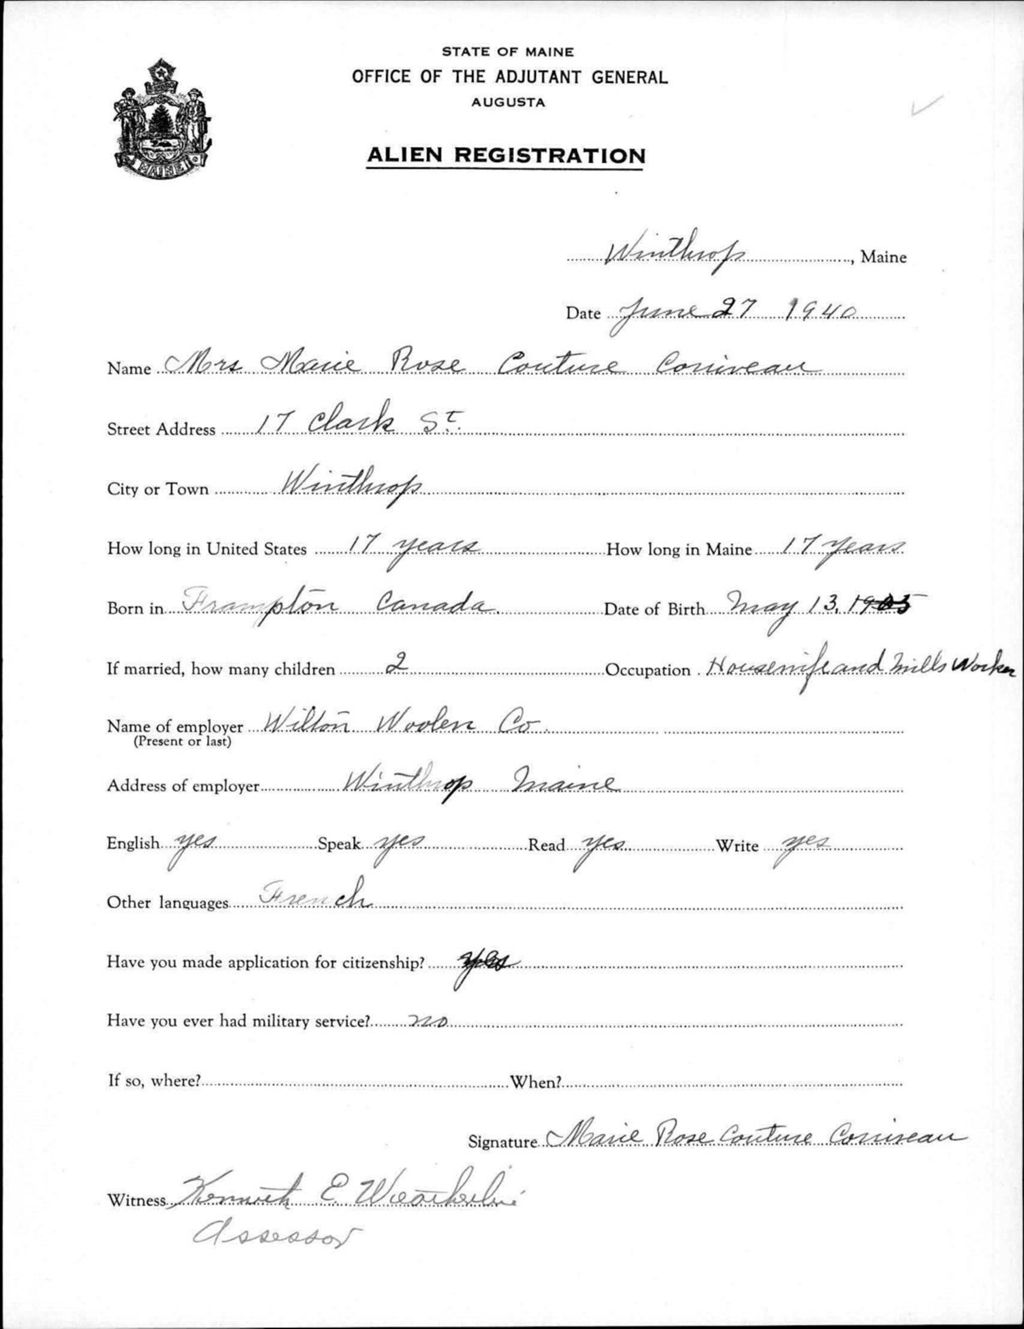 STATE OF MAINE
OFFICE OF THE ADJUTANT GENERAL
AUGUSTA
ALIEN REGISTRATION
MAINE
Winthrop, Maine
Date June 27 1940
Name Mrs Marie Rose Couture Corriveau
Street Address 17 Clark St.
City or Town Winthrop
How long in United States 17 years How long in Maine 17 years
Born in Frampton Canada. Date of Birth May 13, 1905
If married, how many children 2 Occupation Housewife and Mills Worker
Name of employer Wilton Woolen Co.
(Present or last)
Address of employer Winthrop Maine
English yes Speak yes Read yes Write yes
Other languages French
Have you made application for citizenship? yes
Have you ever had military service? no
If so, where? When?
Signature Marie Rose Couture Corriveau
Witness Kenneth E
Assessor